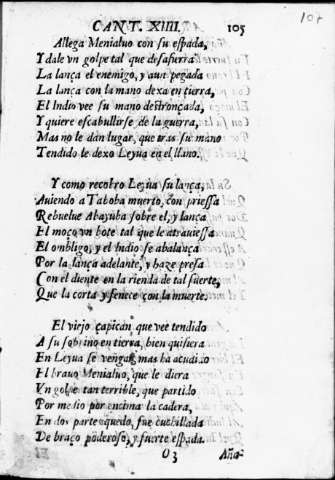 CANT. XIIII. 105
105
Allega Menialuo con su espada,
Y dale vn golpe tal que desafurra
La lança el enemigo, y aun pegada
La lança con la mano dexa en tierra,
El Indio vee su mano destronçada,
Y quiere escabullirse de la guerra,
Mas no le dan lugar, que tras su mano
Tendido le dexo Leyua en el llano.
Y como recobro Leyua su lança,
Auiendo a Taboba muerto, con priessa
Rebuelue Abayuba sobre el, y lança
El moço vn bote tal que le atrauiessa
El ombligo, y el Indio se abalança
Por la lança adelante, y haze presa
Con el diente en la rienda de tal suerte,
Que la corta y fenece con la muerte.
El viejo çapican que vee tendido
A su sobrino en tierra, bien quisiera
En Leyua se vengar, mas ha acudido
El brauo Menialuo, que le diera
Vn golpe tan terrible, que partido
Por medio por encima la cadera,
En dos partes quedo, fue cuchillada
De braço poderoso, y fuerte espada.
O3 Aña-